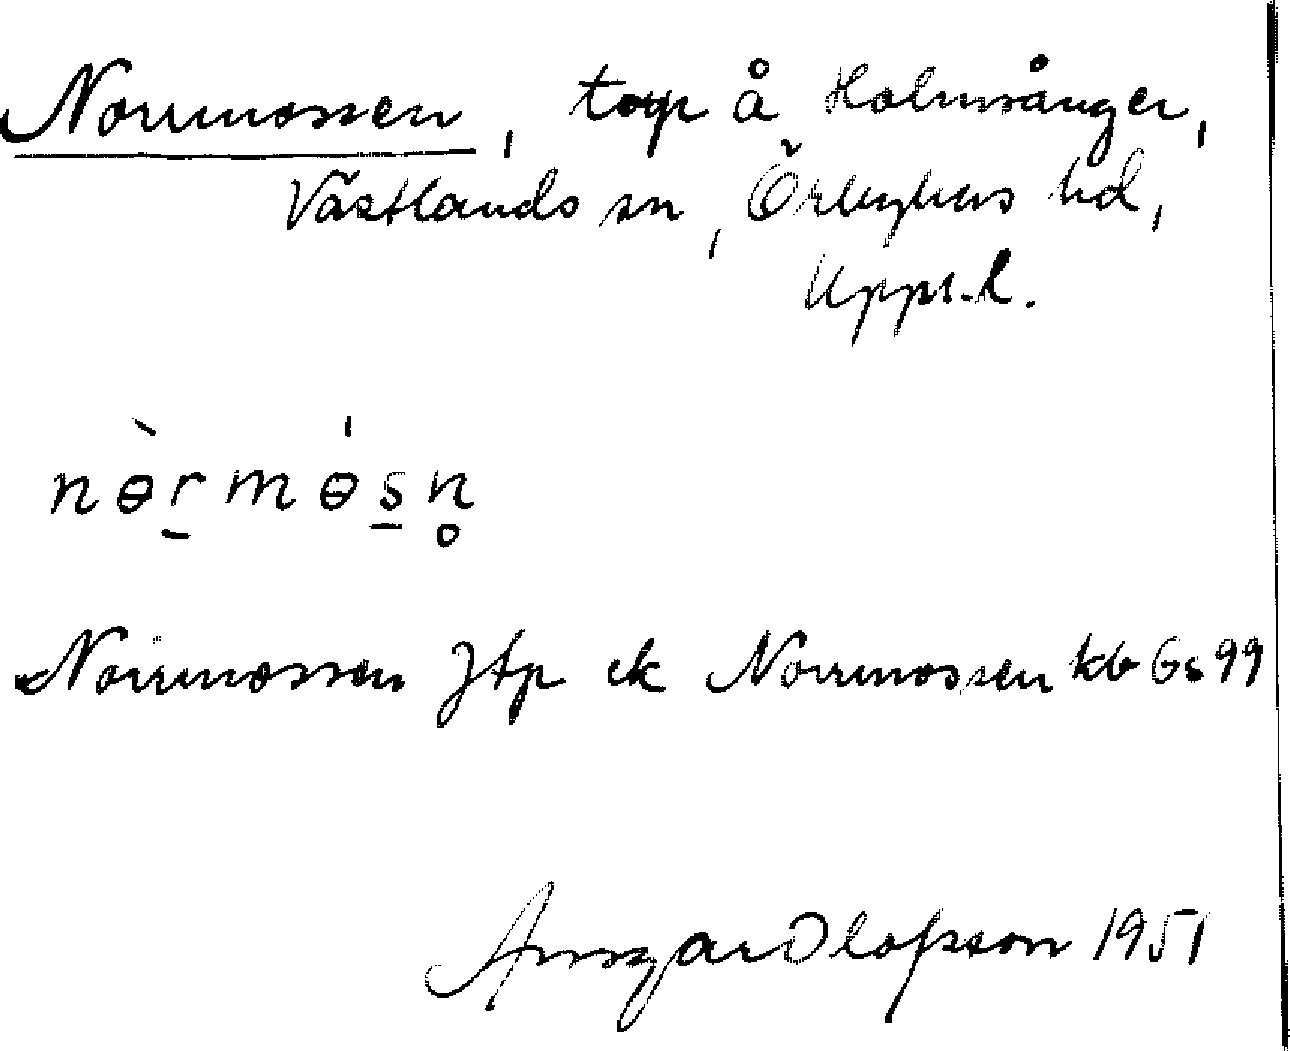 Norrmossen, torp å Holmsånger,
Västlands sn, Örbyhus hd,
Upps. l.
nɵ̀r̠mɵ́s̠n̥
Norrmossen Jtp ek Norrmossen kb Gs 99
Ansgar Olofsson 1951